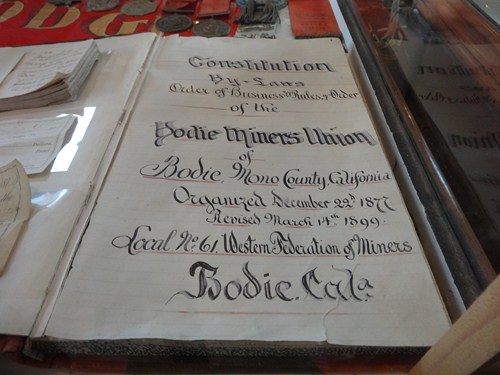 ODG
Constitution
By-Laws
Order of Business & Rules of Order
of the
Bodie Miners' Union
of
Bodie, Mono County, California.
Organized December 22d 1877
Revised March 14th 1899.
Local No. 61, Western Federation of Miners
Bodie. Cala.